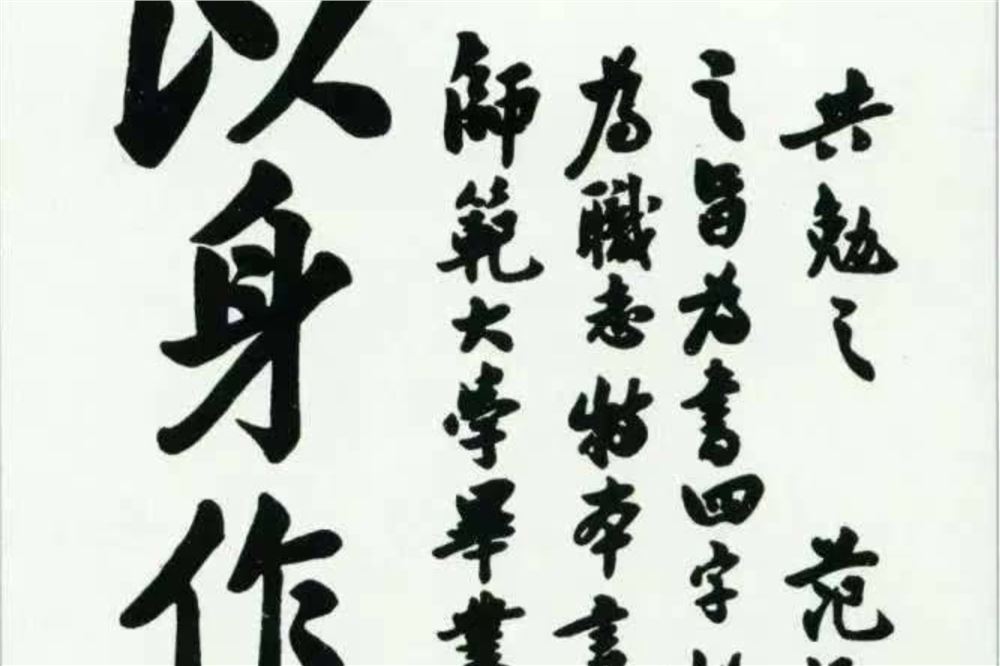 以身作
師範大學畢業
為職志特本書
之旨為書四字
共勉之 范